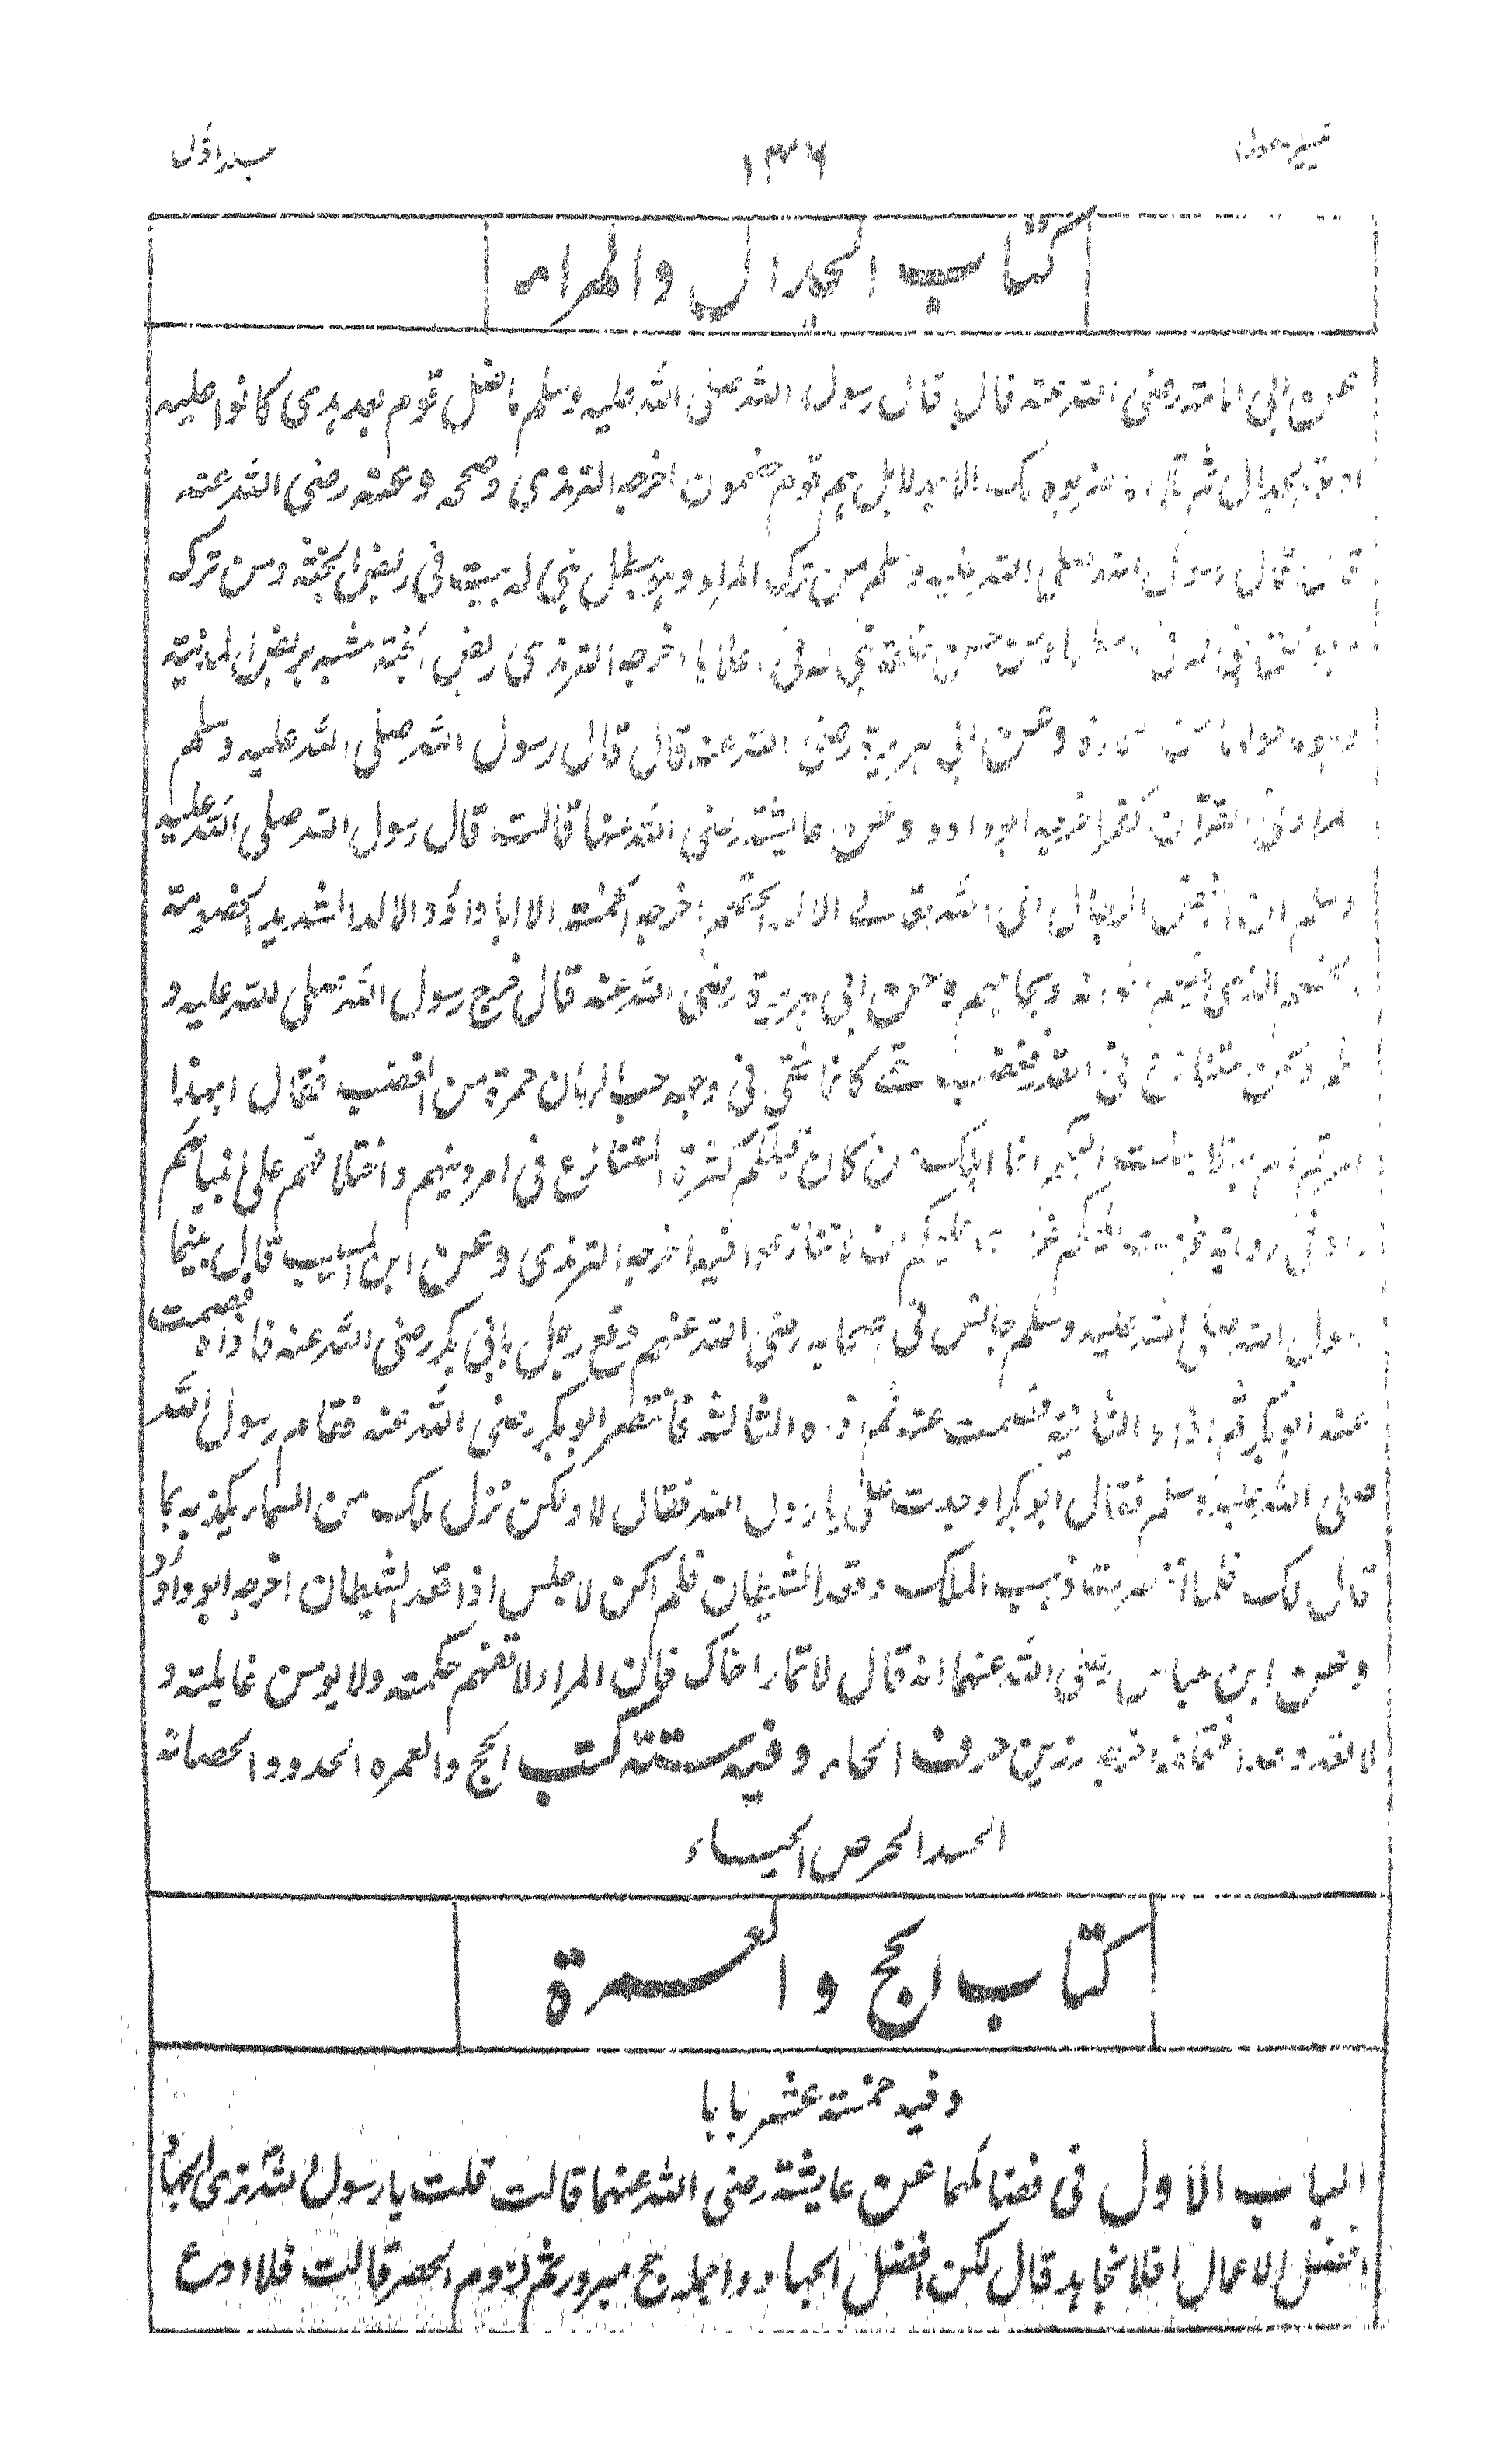 جلد اول
١٣٦
كتاب الجدال والمراء
عن ابى امامة رضى الله عنه قال قال رسول الله صلى الله عليه وسلم ما ضل قوم بعد هدى كانوا عليه
الا بل هم قوم خصمون اخرجه الترمذى وصححه وعنه رضى الله عنه
قال قال رسول الله صلى الله عليه وسلم من ترك المراء وهو مبطل بنى له بيت فى ربض الجنة ومن تركه
ومن حسن خلقه بنى له فى اعلاها اخرجه الترمذى ربض الجنة مشبه بربض المدينة
وهو ما حولها وعن ابى هريرة رضى الله عنه قال قال رسول الله صلى الله عليه وسلم
المراء فى القرآن كفر اخرجه ابو داود وعن عايشة رضى الله عنها قالت قال رسول الله صلى الله عليه
وسلم ان ابغض الرجال الى الله تعالى الالد الخصم اخرجه الخمسة الا ابا داؤد الالد الشديد الخصومة
وعن ابى هريرة رضى الله عنه قال خرج رسول الله صلى الله عليه و
سلم ونحن نتنازع فى القدر فغضب حتى كانما فقئ فى وجهه حب الرمان حمرة من الغضب فقال ابهذا
امرتم ام بهذا ارسلت اليكم انما اهلك من كان قبلكم كثرة التنازع فى امر دينهم واختلافهم على انبيائهم
وفى رواية عزمت عليكم عزمت عليكم ان لا تنازعوا فيه اخرجه الترمذى وعن ابن المسيب قال بينما
رسول الله صلى الله عليه وسلم جالس فى اصحابه رضى الله عنهم وقع رجل بابى بكر رضى الله عنه فاذاه فصمت
عنه ابو بكر ثم اذاه الثانية فصمت عنه ثم اذاه الثالثة فانتصر ابو بكر رضى الله عنه فقام رسول الله
صلى الله عليه وسلم فقال ابو بكر اوجدت على يا رسول الله فقال لا ولكن نزل ملك من السماء يكذبه بما
قال لك فلما انتصرت ذهب الملك وقعد الشيطان فلم اكن لاجلس اذا قعد الشيطان اخرجه ابو داؤد
وعن ابن عباس رضى الله عنهما انه قال لا تمار اخاك فان المراء لا تفهم حكمته ولا يومن غايلته و
لا تعد وعدا فتخلفه اخرجه رزين حرف الحاء وفيه ستة كتب الحج والعمره الحدود الحضانة
الحسد الحرص الحياء
كتاب الحج والعمرة
وفيه خمسة عشر بابا
الباب الاول فى فضائلهما عن عايشة رضى الله عنها قالت قلت يا رسول الله نرى الجهاد
افضل الاعمال افلا نجاهد قال لكن افضل الجهاد واجمله حج مبرور ثم لزوم الحصر قالت فلا ادع